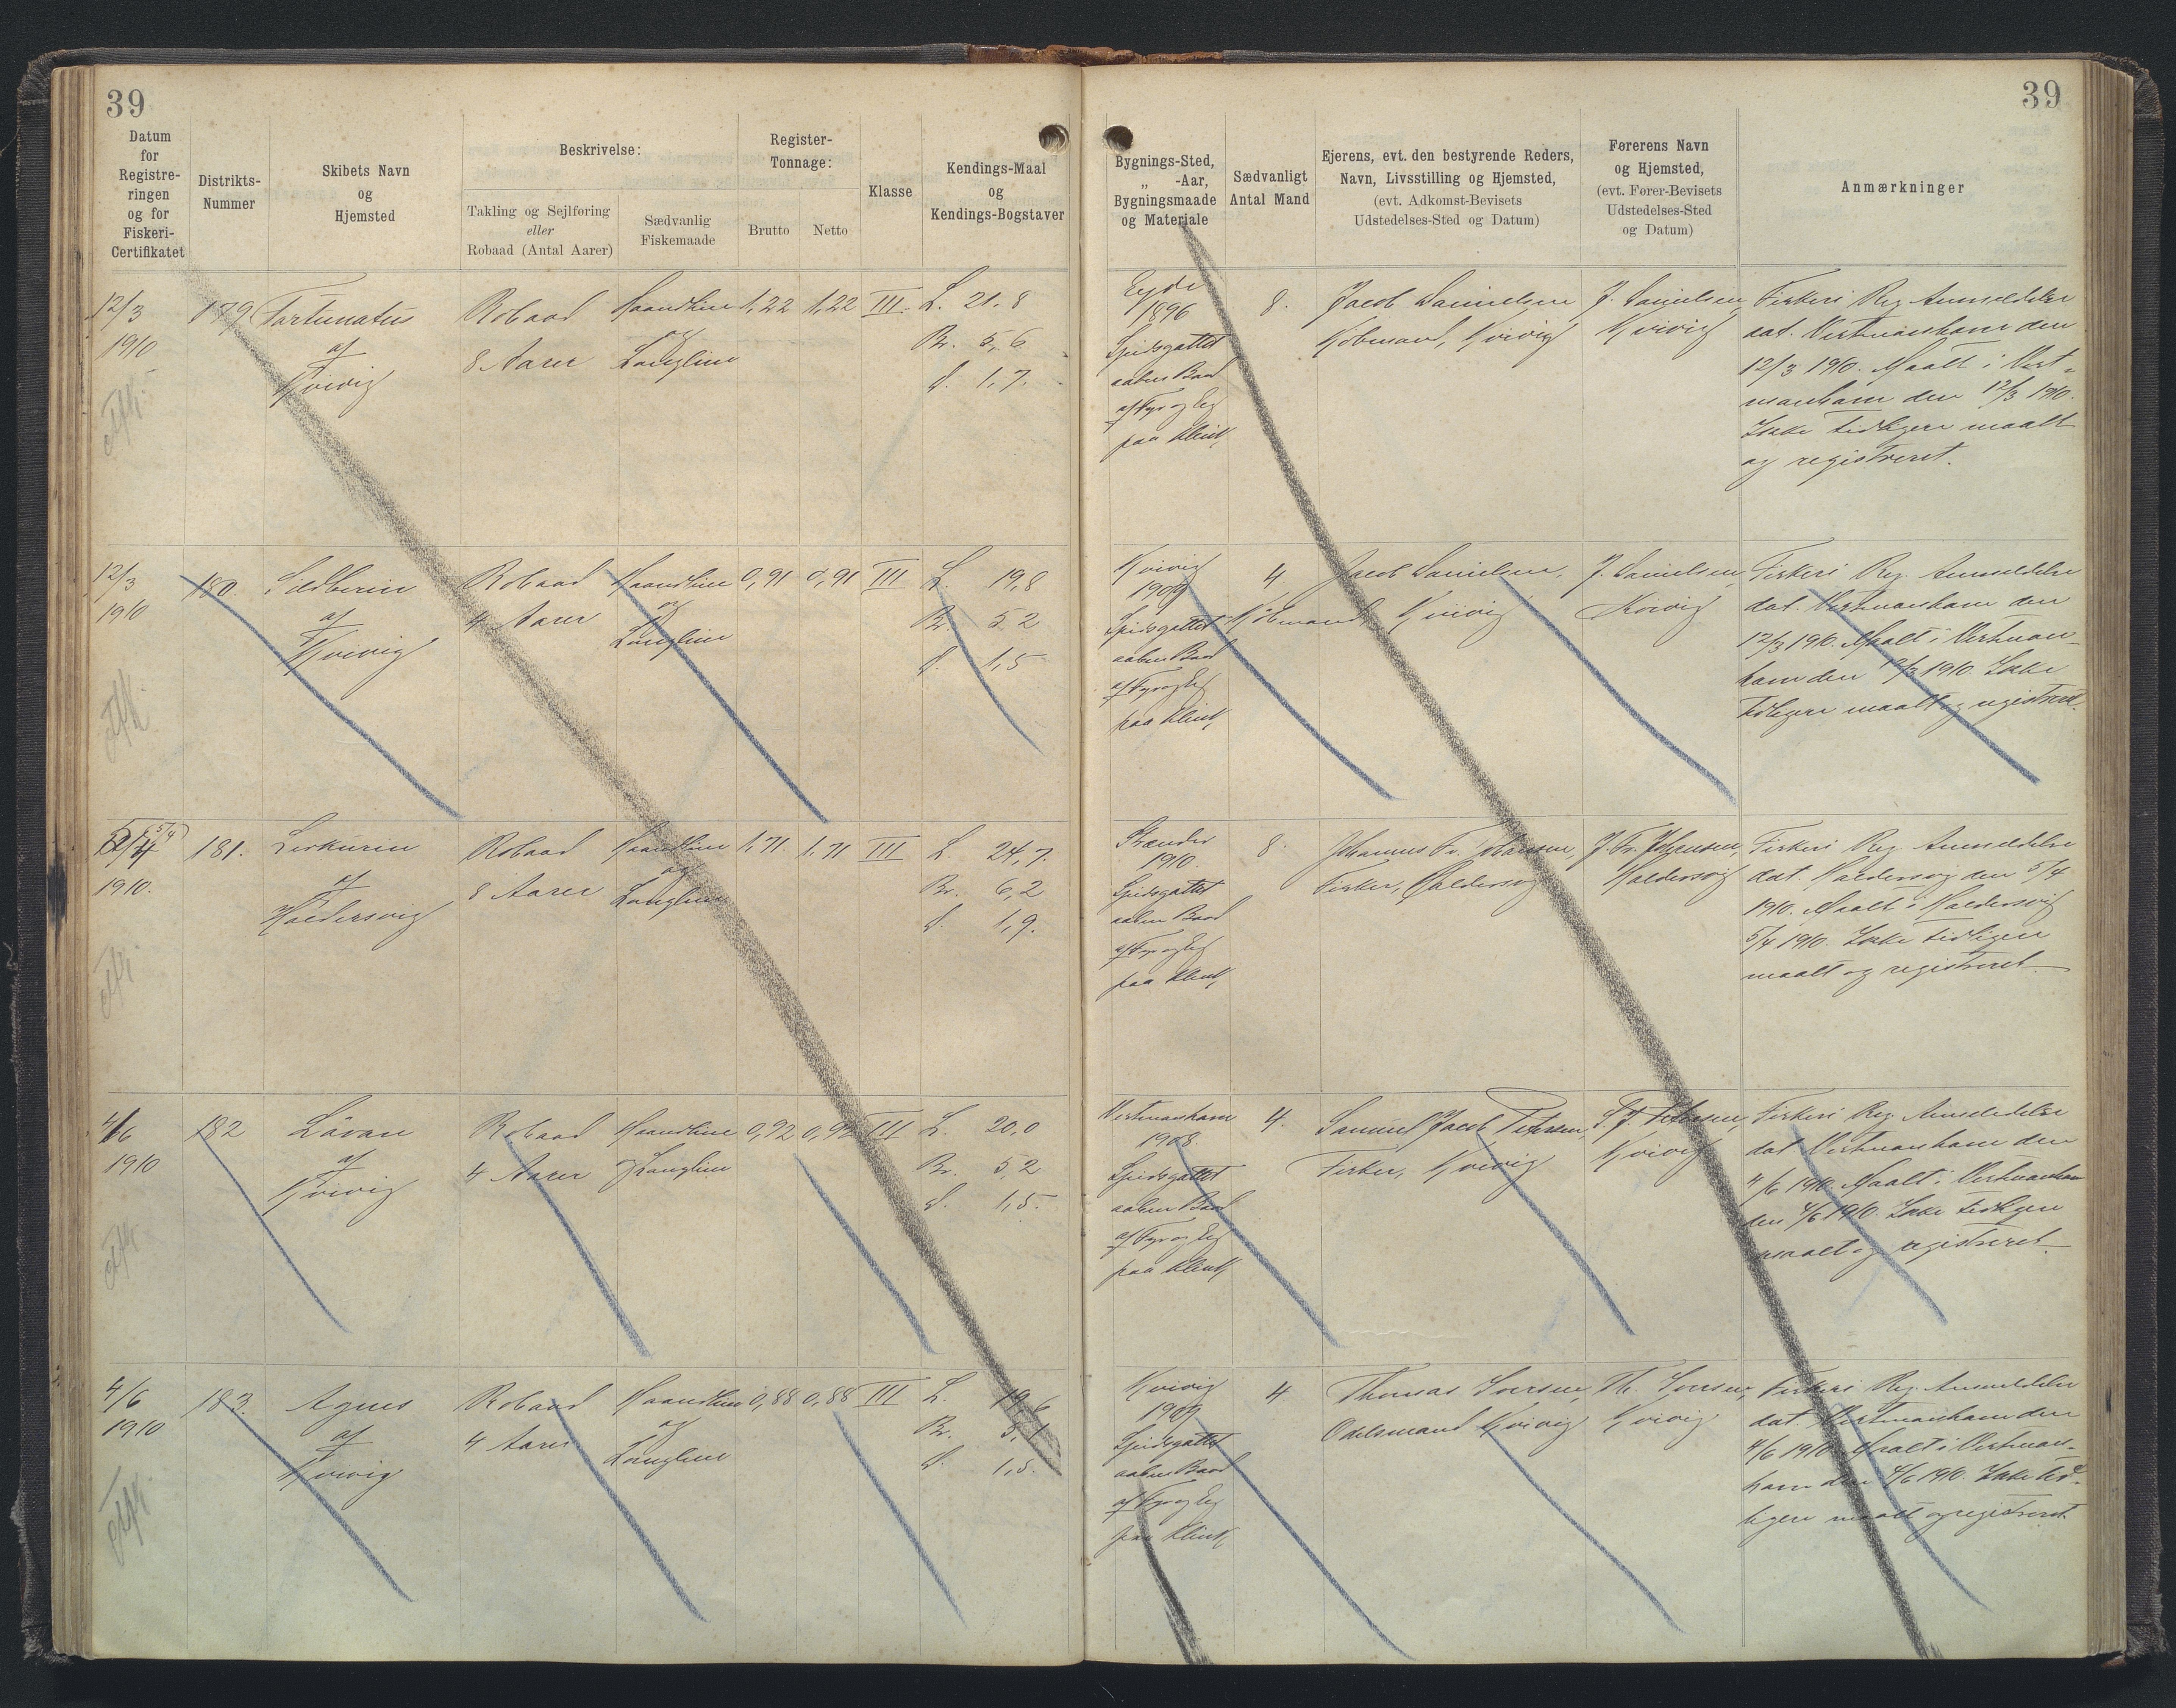 39
39
Datum
for
Registre-
ringen
og for
Fiskeri-
Certifikatet
Distrikts-
Nummer
Skibets Navn
og
Hjemsted
Beskrivelse:
Takling og Sejlføring
eller
Robaad (Antal Aarer)
Sædvanlig
Fiskemaade
Register-
Tonnage:
Brutto
Netto
Klasse
Kendings-Maal
og
Kendings-Bogstaver
Bygnings-Sted,
„ -Aar,
Bygningsmaade
og Materiale
Sædvanligt
Antal Mand
Ejerens, evt. den bestyrende Reders,
Navn, Livsstilling og Hjemsted,
(evt. Adkomst-Bevisets
Udstedelses-Sted og Datum)
Førerens Navn
og Hjemsted,
(evt. Fører-Bevisets
Udstedelses-Sted
og Datum)
Anmærkninger
12/3
1910
179
Fortunatus
af
Kvivig
Robaad
8 Aarer
Haandline
og
Langline
1,22
1,22
III.
L. 21,8
Br. 5,6
d. 1,7.
Eyde
1896
Spidsgattet
aaben Baad
af Fyr og Eg
paa Klink
8.
Jacob Danielsen
Købmand, Kvivig
J. Danielsen,
Kvivig
Fiskeri Reg. Anmeldelse
dat. Vestmanhavn den
12/3 1910. Maalt i Vest-
manhavn den 12/3 1910.
Ikke tidligere maalt
og registreret.
12/3
1910
180.
Sildberin
af
Kvivig
Robaad
4 Aarer
Haandline
og
Langline
0,91
0,91
III
L. 19,8
Br. 5,2
d. 1,5
Kvivig
1909
Spidsgattet
aaben Baad
af Fyr og Eg
paa Klink
4
Jacob Danielsen,
Købmand, Kvivig
J. Danielsen,
Kvivig
Fiskeri Reg. Anmeldelse
dat. Vestmanhavn den
12/3 1910. Maalt i Vestman-
havn den 12/3 1910. Ikke
tidligere maalt og registreret.
5/4
1910.
181.
af
Haldersvig
Robaad
8 Aarer
Haandline
og
Langline
1,71.
1,71
III
L 24,7.
Br. 6,2
d. 1,9.
1910.
Spidsgattet
aaben Baad
af Fyr og Eg
paa Klink
8.
Johannes Fr. Johansen,
Fisker, Haldersvig
J. Fr. Johansen,
Haldersvig
Fiskeri Reg. Anmeldelse
dat. Haldersvig den 5/4
1910. Maalt i Haldersvig
5/4 1910. Ikke tidligere
maalt og registreret.
4/6
1910
182
Lávan
af
Kvivig
Robaad
4 Aarer
Haandline
og Langline
0,92
0,92
III
L. 20,0
Br. 5,2
d. 1,5.
Vestmanhavn
1908.
Spidsgattet
aaben Baad
af Fyr og Eg
paa Klink
4.
Samuel Jacob Petersen,
Fisker, Kvivig
S. J. Petersen,
Kvivig
Fiskeri Reg. Anmeldelse
dat Vestmanhavn den
4/6 1910. Maalt i Vestmanhavn
den 4/6 1910. Ikke tidligere
maalt og registreret.
4/6
1910
183.
Agnes
af
Kvivig
Robaad
4 Aarer
Haandline
og
Langline
0,88
0,88
III
L. 19,6
Br. 5,1
d. 1,5.
Kvivig
1909
Spidsgattet
aaben Baad
af Fyr og Eg
paa Klink
4.
Thomas Joensen,
Odelsmand Kvivig
Th. Joensen,
Kvivig
Fiskeri Reg. Anmeldelse
dat. Vestmanhavn den
4/6 1910. Maalt i Vestman-
havn den 4/6 1910. Ikke tid-
ligere maalt og registreret.